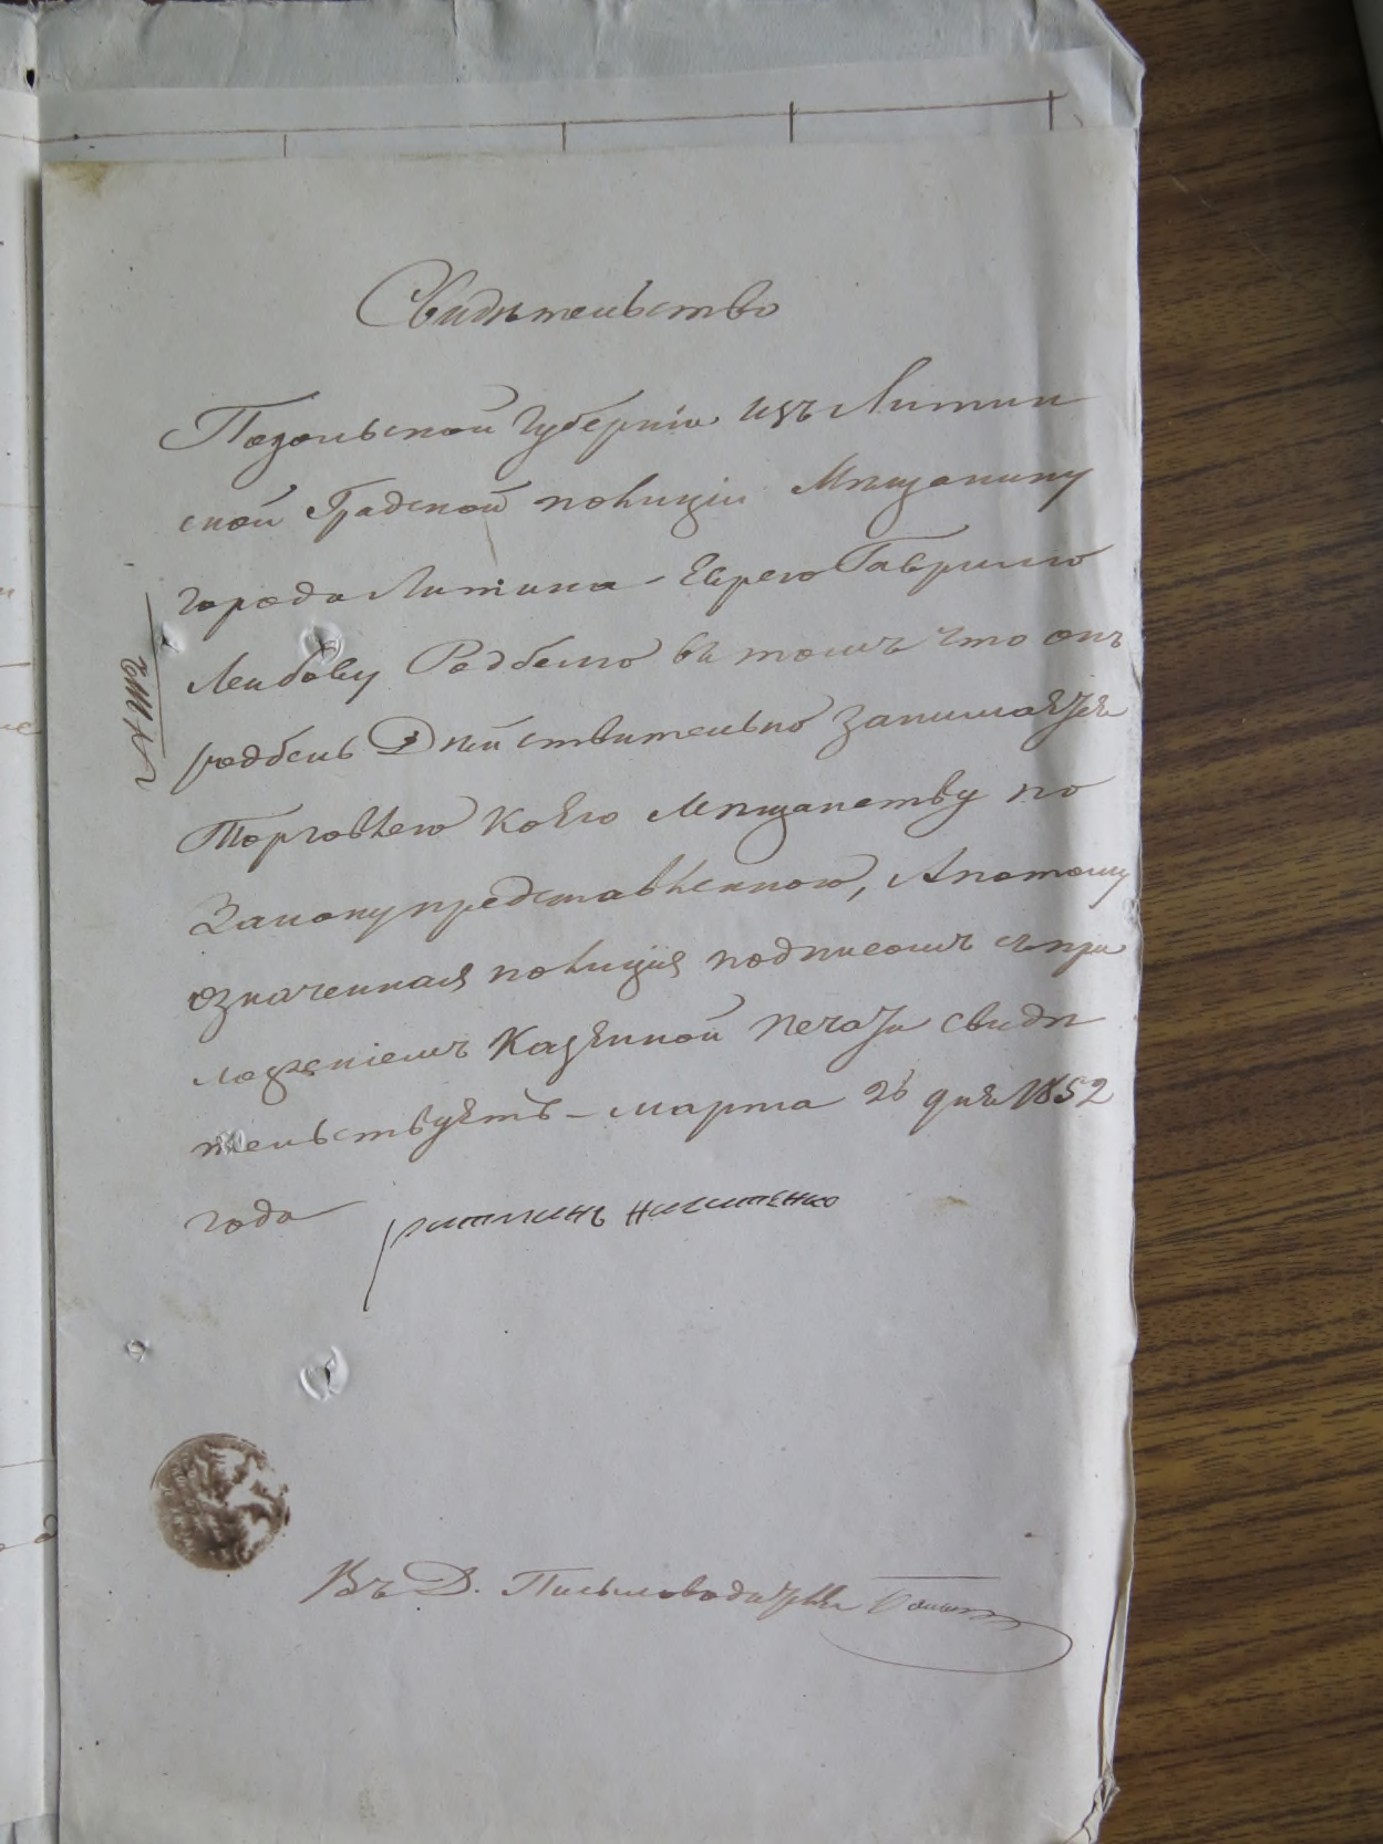 Свидѣтельство
Подольской Губерніи изъ Литин
ской Градской полиціи Мѣщанину
города Литина - Еврею Гаврилю
Лейбову Редбелю въ томъ что онъ
редбель Дѣйствительно занимается
Торговлею коего Мѣщанству по
Закону представленною, А потому
означенная полиція подписомъ съ при
ложеніемъ Казенной печати свидѣ
тельствуетъ - марта 26 дня 1852
года
Никитенко
Въ Д. Письмоводителя